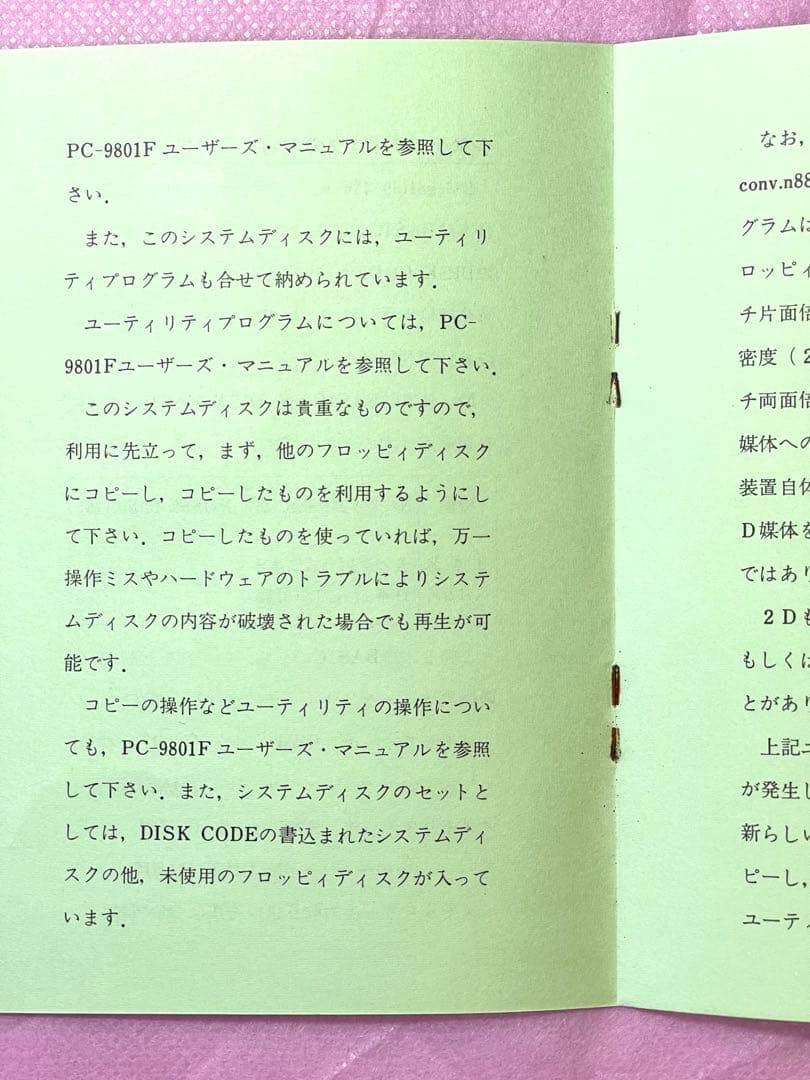 PC-9801F ユーザーズ・マニュアルを参照して下
さい．
また，このシステムディスクには，ユーティリ
ティプログラムも合せて納められています．
ユーティリティプログラムについては，PC-
9801Fユーザーズ・マニュアルを参照して下さい．
このシステムディスクは貴重なものですので，
利用に先立って，まず，他のフロッピィディスク
にコピーし，コピーしたものを利用するようにし
て下さい．コピーしたものを使っていれば，万一
操作ミスやハードウェアのトラブルによりシステ
ムディスクの内容が破壊された場合でも再生が可
能です．
コピーの操作などユーティリティの操作につい
ても，PC-9801F ユーザーズ・マニュアルを参照
して下さい．また，システムディスクのセットと
しては，DISK CODEの書込まれたシステムディ
スクの他，未使用のフロッピィディスクが入って
います．
なお，
conv.n88
グラムに
ロッピィ
チ片面倍
密度（2
チ両面倍
媒体への
装置自体
D媒体を
ではあり
2Dも
もしくは
とがあり
上記ユ
が発生し
新らしい
ピーし，
ユーティ